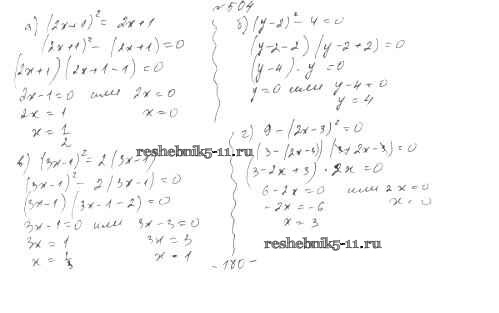 №504
а) (2x+1)² = 2x+1
(2x+1)² - (2x+1) = 0
(2x+1)(2x+1-1) = 0
2x-1=0 или 2x=0
2x = 1 x=0
x = 1/2
б) (y-2)² - 4 = 0
(y-2-2)(y-2+2) = 0
(y-4)·y = 0
y=0 или y-4=0
y = 4
в) (3x-1)² = 2(3x-1)
(3x-1)² - 2(3x-1) = 0
(3x-1)(3x-1-2) = 0
3x-1=0 или 3x-3=0
3x = 1 3x = 3
x = 1/3 x = 1
г) 9-(2x-3)² = 0
(3-(2x-3))(3+2x-3) = 0
(3-2x+3)·2x = 0
6-2x=0 или 2x=0
-2x = -6 x=0
x = 3
-180-
reshebnik5-11.ru
reshebnik5-11.ru